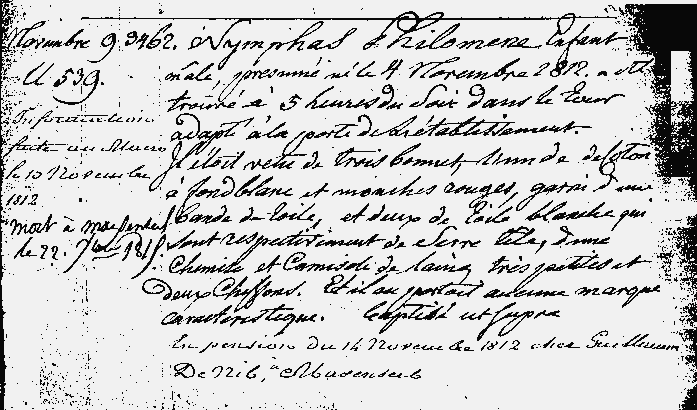 Novembre 9 3462. Nymphas Philomene Enfant
U 539. male, presumé né le 4 Novembre 1812. a été
trouvé à 5 heures du Soir dans le Tour
adapté à la porte de l'établissement.
Information
faite au Maire
le 10 Novembre
1812
mort à
le 22. 7bre 181
Il étoit vetu de trois bonnets, l'un de
a fond blanc et mouches rouges, garni d'une
bande de toile, et deux de toile blanche qui
sont respectivement de Serre tete, d'une
Chemise et Camisole de laine, très petites et
deux Chiffons. Et il ne portait aucune marque
caracteristique. baptisé ut supra
En pension du 14 Novembre 1812 chez
De Nil,